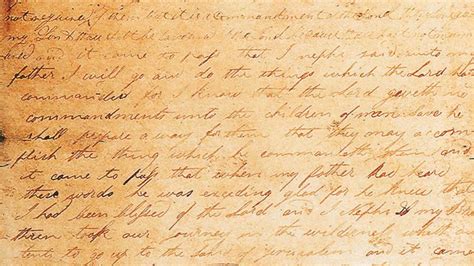 not required them but it is a commandment of the Lord
my Son thou shalt be favored of the Lord because thou hast not mur
and it came to pass that I nephi said unto my
father I will go and do the things which the Lord hath
commanded for I know that the Lord giveth no
commandments unto the children of men save he
shall prepare a way for them that they may accom
plish the thing which he commandeth them and
it came to pass that when my father had heard
these words he was exceding glad for he knew that
I had been blessed of the Lord and I Nephi & my
thren took our journey in the wilderness with our
tents to go up to the land of jerusalem and it came